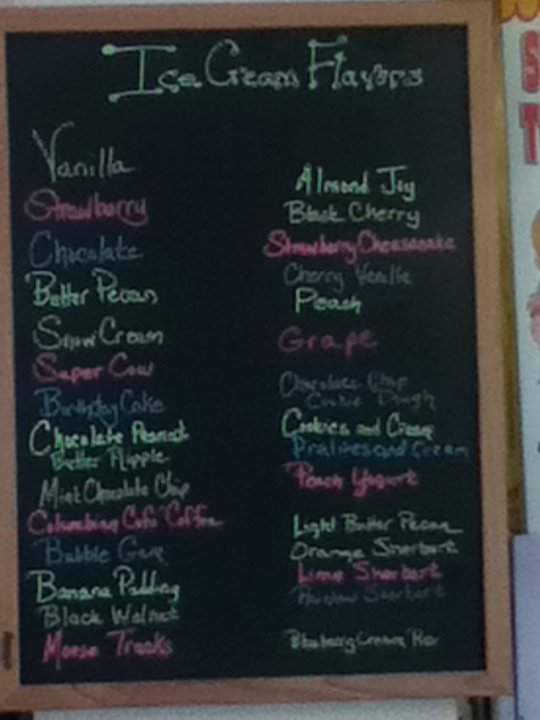 Ice Cream Flavors
Vanilla
Strawberry
Chocolate
Butter Pecan
Snow Cream
Super Cow
Birthday Cake
Chocolate Peanut
Butter Ripple
Mint Chocolate Chip
Columbian Cafe Coffee
Bubble Gum
Banana Pudding
Black Walnut
Moose Tracks
Almond Joy
Black Cherry
Strawberry Cheesecake
Cherry Vanilla
Peach
Grape
Chocolate Chip
Cookie Dough
Cookies and Cream
Pralines and Cream
Peach Yogurt
Light Butter Pecan
Orange Sherbert
Lime Sherbert
Sherbert
Cream
S
T